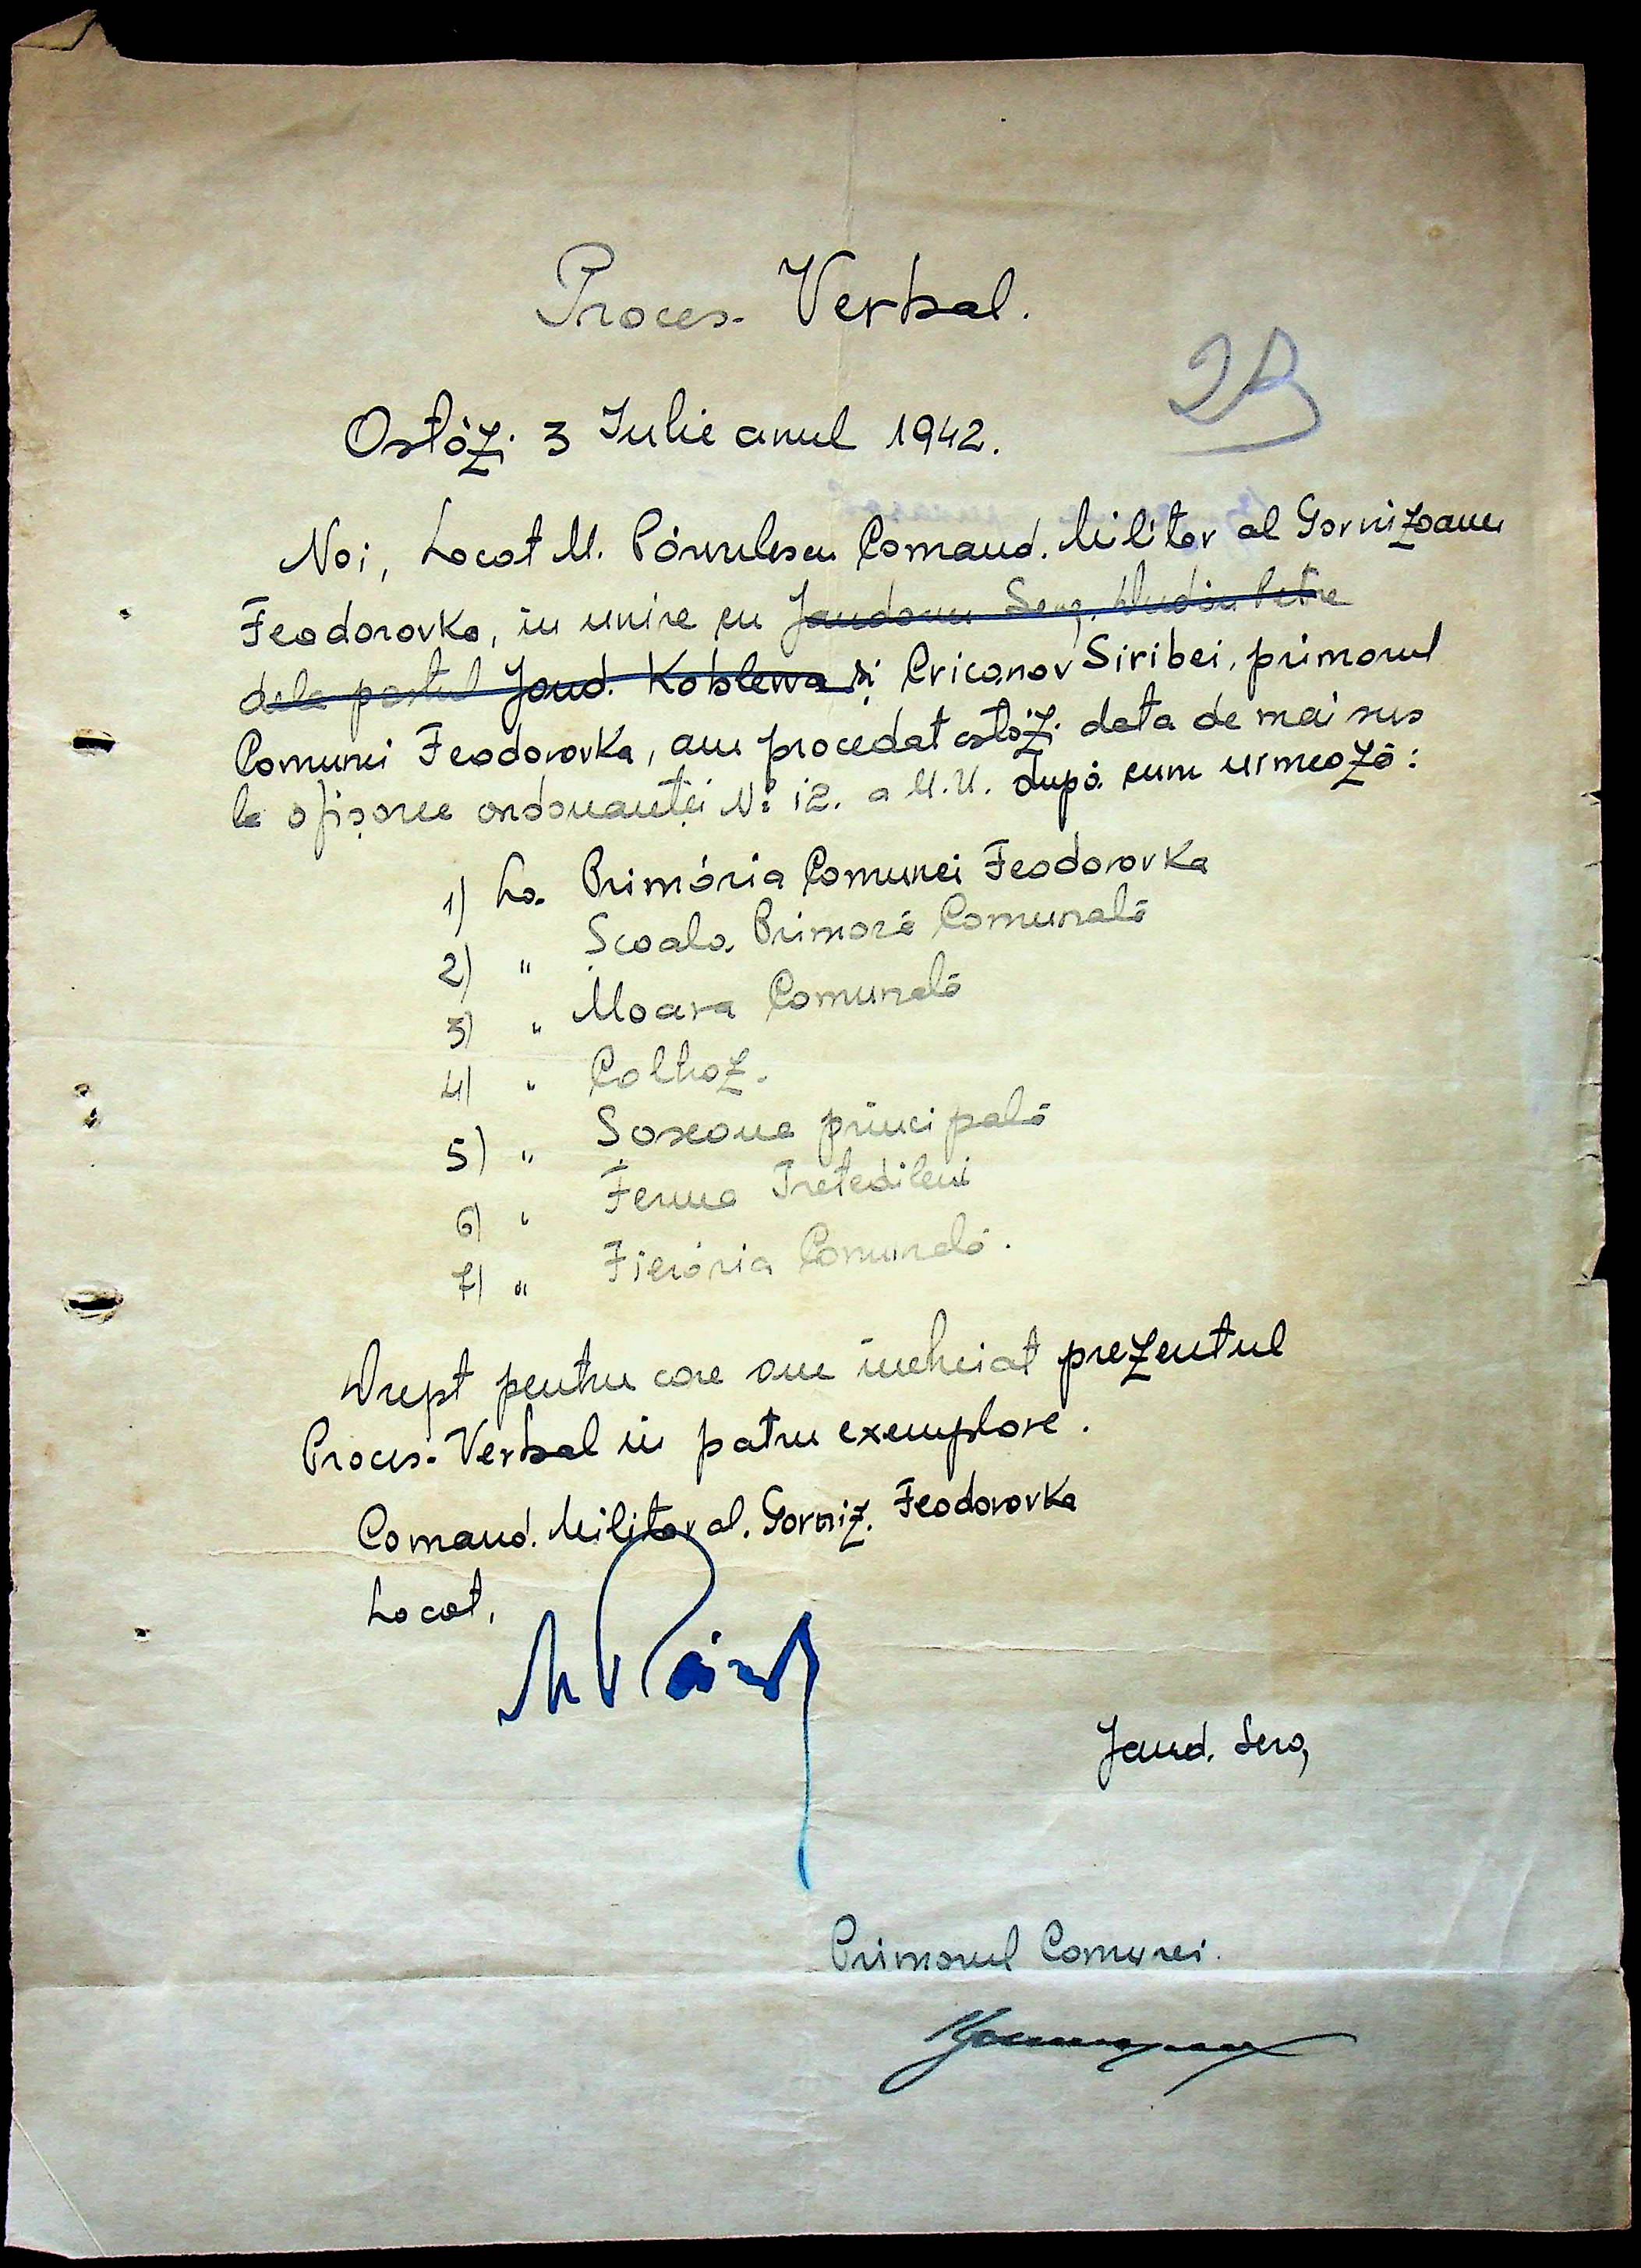 Proces-Verbal.
28
Astăzi 3 Iulie anul 1942.
Noi, Locot M. Pârvulescu Comand. Militar al Garnizoanei
Feodorovka, in unire cu Jandarm Serg. Dudin Petre
dela postul Jand. Koblewa și Cricanov Siribei, primarul
Comunei Feodorovka, am procedat astăzi data de mai sus
la afișarea ordonanței No 12. a M.U. după cum urmează:
1) La Primăria Comunei Feodorovka
2) " Școala Primară Comunală
3) " Moara Comunală
4) " Colhoz.
5) " Șoseaua principală
6) " Ferma Tretedileni
7) " Fierăria Comunală.
Drept pentru care am incheiat prezentul
Proces-Verbal in patru exemplare.
Comand. Militar al. Garniz. Feodorovka
Locot.
Jand. Serg,
Primarul Comunei.